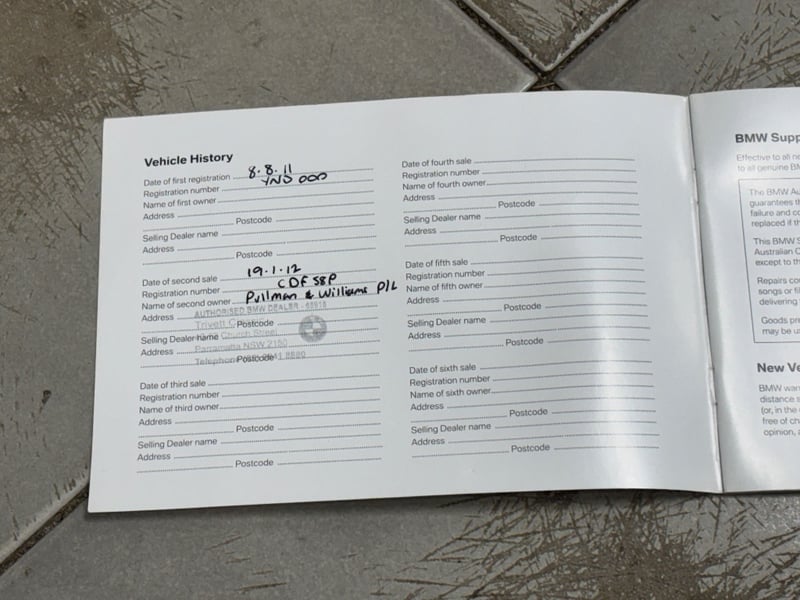 Vehicle History
Date of first registration 8.8.11
Registration number YND 00D
Name of first owner
Address
Postcode
Selling Dealer name
Address
Postcode
Date of second sale 19.1.12
Registration number CDF 58P
Name of second owner Pullman & Williams P/L
Address AUTHORISED BMW DEALER
Trivett Postcode
Selling Dealer name Church Street
Address Parramatta NSW 2150
Telephone Postcode 8880
Date of third sale
Registration number
Name of third owner
Address
Postcode
Selling Dealer name
Address
Postcode
Date of fourth sale
Registration number
Name of fourth owner
Address
Postcode
Selling Dealer name
Address
Postcode
Date of fifth sale
Registration number
Name of fifth owner
Address
Postcode
Selling Dealer name
Address
Postcode
Date of sixth sale
Registration number
Name of sixth owner
Address
Postcode
Selling Dealer name
Address
Postcode
BMW Supp
Effective to all ne
to all genuine BM
The BMW Au
guarantees th
failure and co
replaced if th
This BMW S
Australian C
except to th
Repairs co
songs or fil
delivering
Goods pre
may be us
New Ve
BMW warr
distance s
(or, in the
free of ch
opinion, a